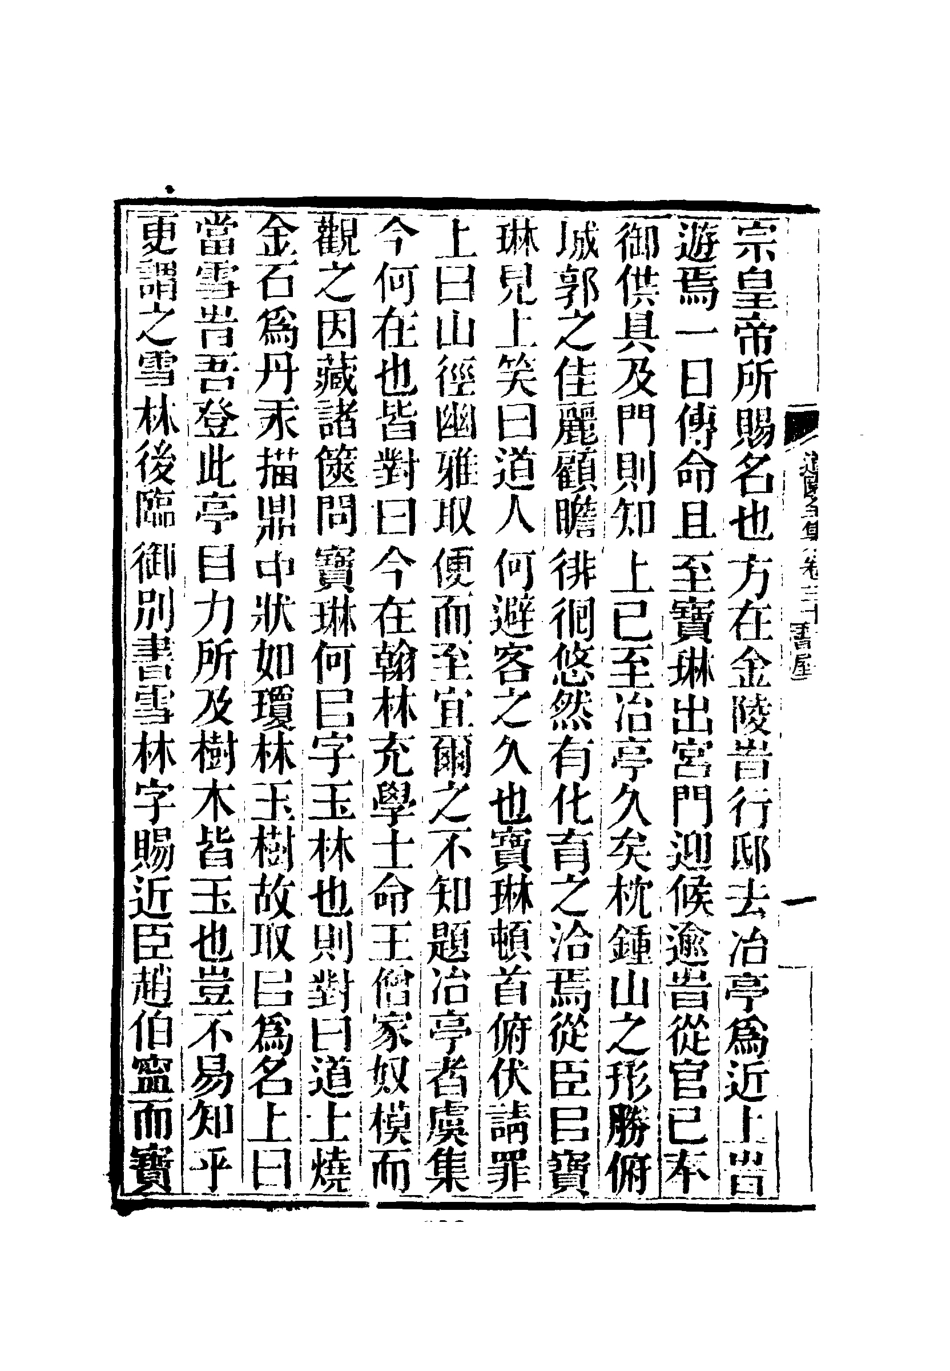 宗皇帝所賜名也方在金陵旹行邸去冶亭爲近上旹
遊焉一日傳命且至寶琳出宮門迎候逾旹從官已奉
御供具及門則知上已至冶亭久矣枕鍾山之形勝俯
城郭之佳麗顧瞻徘徊悠然有化育之洽焉從臣㠯寶
琳見上笑曰道人何避客之久也寶琳頓首俯伏請罪
上曰山徑幽雅取便而至宜爾之不知題冶亭者虞集
今何在也皆對曰今在翰林充學士命王僧家奴模而
觀之因藏諸篋問寶琳何㠯字玉林也則對曰道士燒
金石爲丹汞描鼎中狀如瓊林玉樹故取㠯爲名上曰
當雪旹吾登此亭目力所及樹木皆玉也豈不易知乎
更謂之雪林後臨御別書雪林字賜近臣趙伯寍而寶
道園全集 卷三十 書屋 一